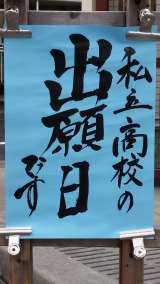 私立高校の
出願日
です